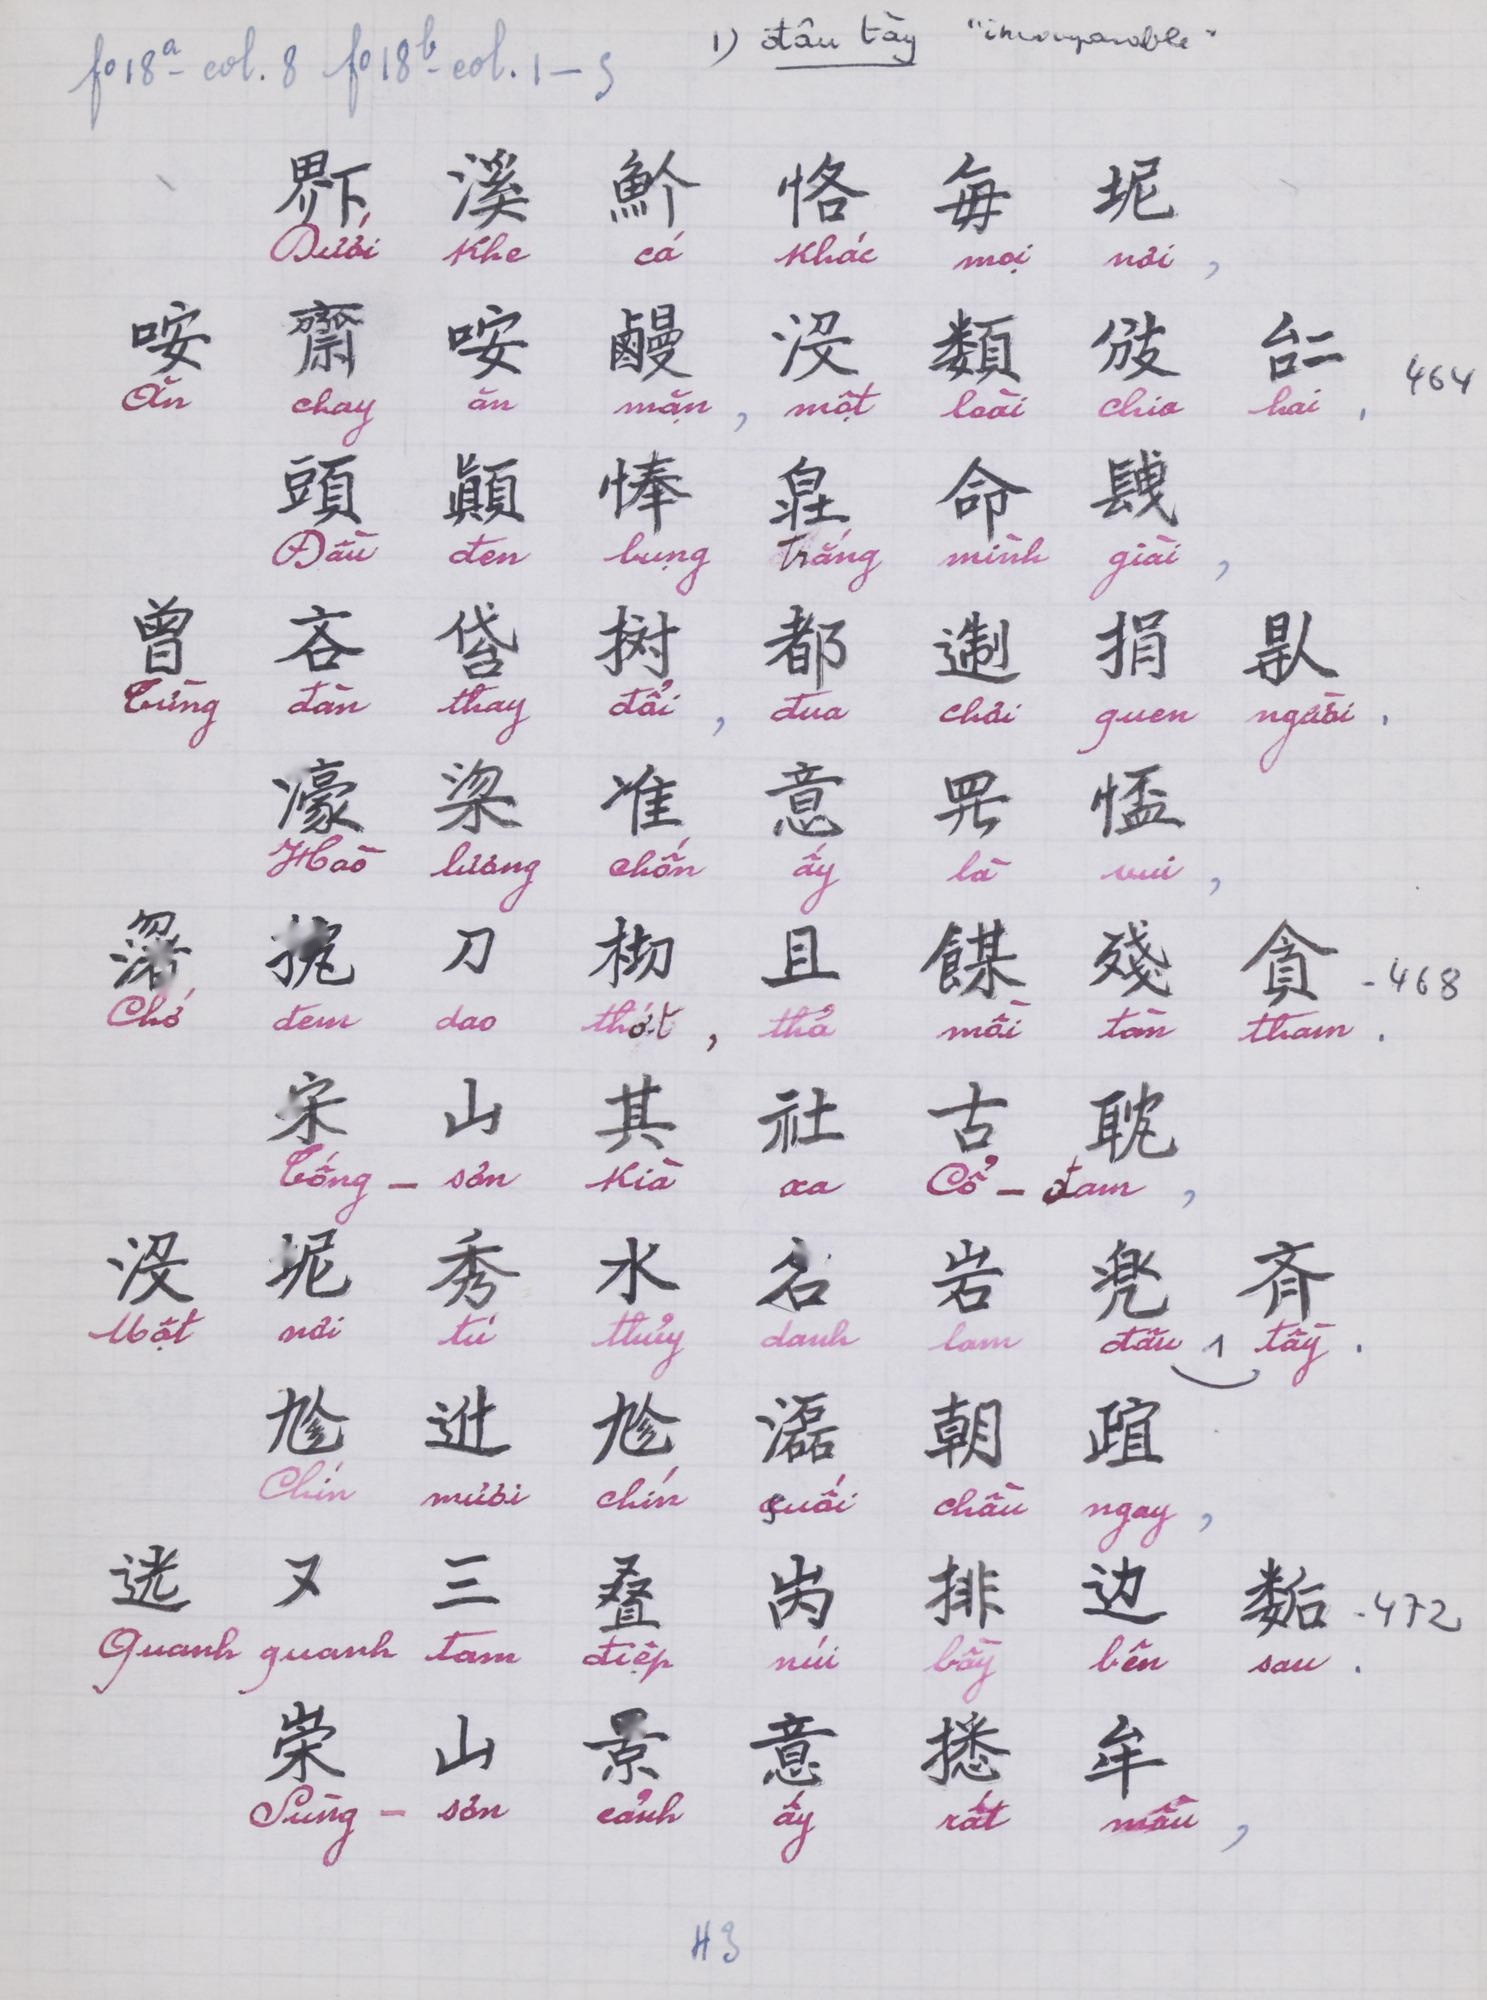 fº 18ª - col. 8 fº 18ᵇ - col. 1 – 5
1) đâu tày "incomparable"
𤲂 溪 𩵜 恪 每 坭
Dưới khe cá khác mọi nơi,
咹 齋 咹 䤍 沒 類 𢺹 𠄩
Ăn chay ăn mặn, một loài chia hai. 464
頭 顛 㤓 𤽸 命
Đầu đen bụng trắng mình giài,
曾 吝 𠊝 𢷮 都 捐 𠊛
Từng đàn thay đổi, đua chơi quen người.
濠 梁 准 意 𱺵 𢝙
Hào lương chốn ấy là vui,
刀 且 殘 貪
Chớ đem dao thớt, thả mồi tàn tham. - 468
宋 山 其 社 古 耽
Tống - sơn kià xa Cổ - đam,
沒 坭 秀 水 名 岩 兜 齐
Một nơi tú thủy danh lam đâu 1 tầy.
𢒂 𨑮 𢒂 朝
Chín mươi chín suối chầu ngay,
又 三 叠 𡶀 排 边
Quanh quanh tam điệp núi bầy bên sau. - 472
崇 山 景 意 牟
Sùng - sơn cảnh ấy rất mầu,
43